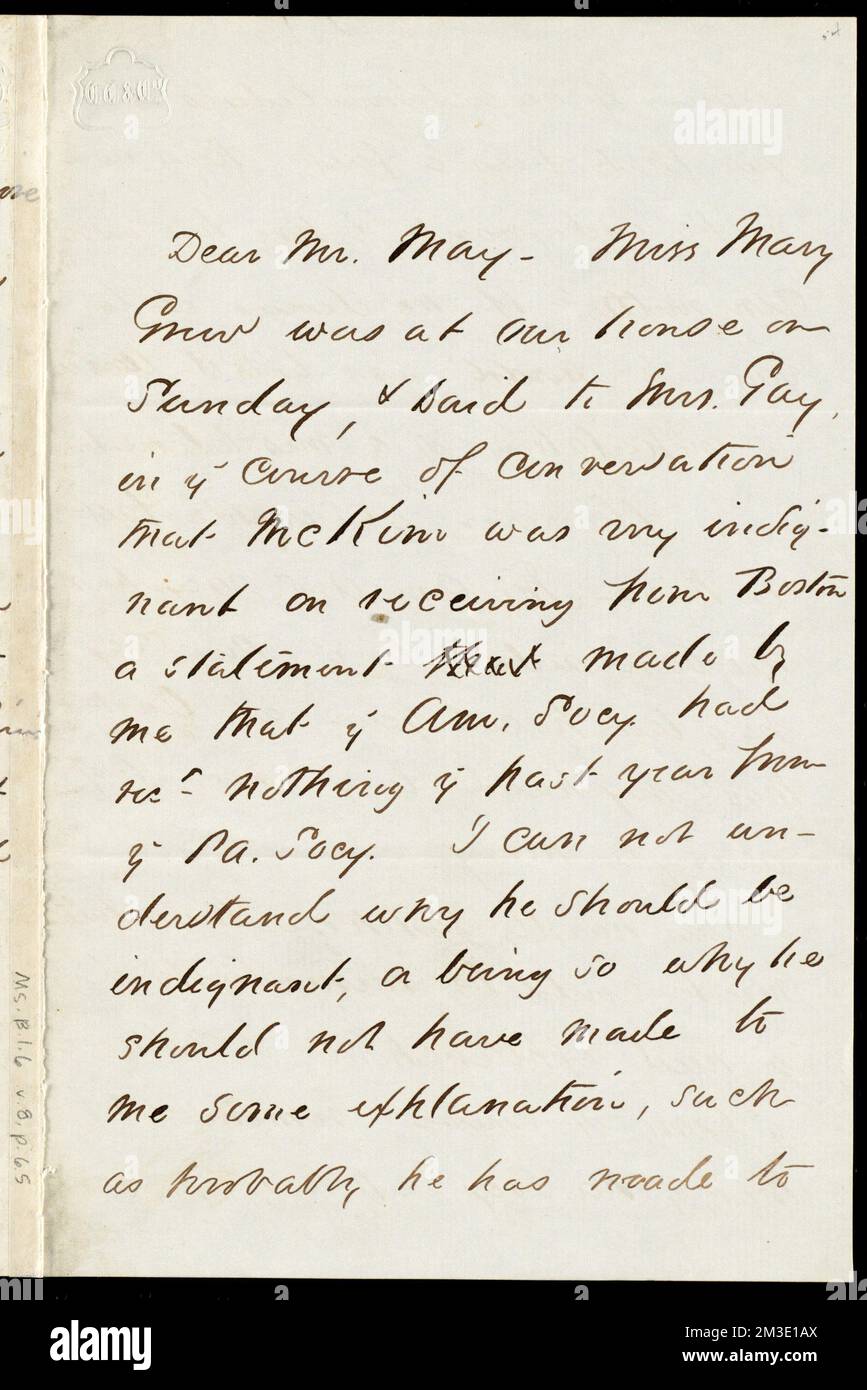 Dear Mr. May - Miss Mary
Grew was at our house on
Sunday, & said to Mrs. Gay,
in yͤ course of conversation
that McKim was very indig-
nant on receiving from Boston
a statement that made by
me that yͤ Am. Socy. had
recᵈ nothing yͤ past year from
yͤ Pa. Socy. I can not un-
derstand why he should be
indignant, or being so why he
should not have made to
me some explanation, such
as probably he has made to
Ms. B.1.6 v.8, p.65
alamy
Image ID: 2M3E1AX
www.alamy.com